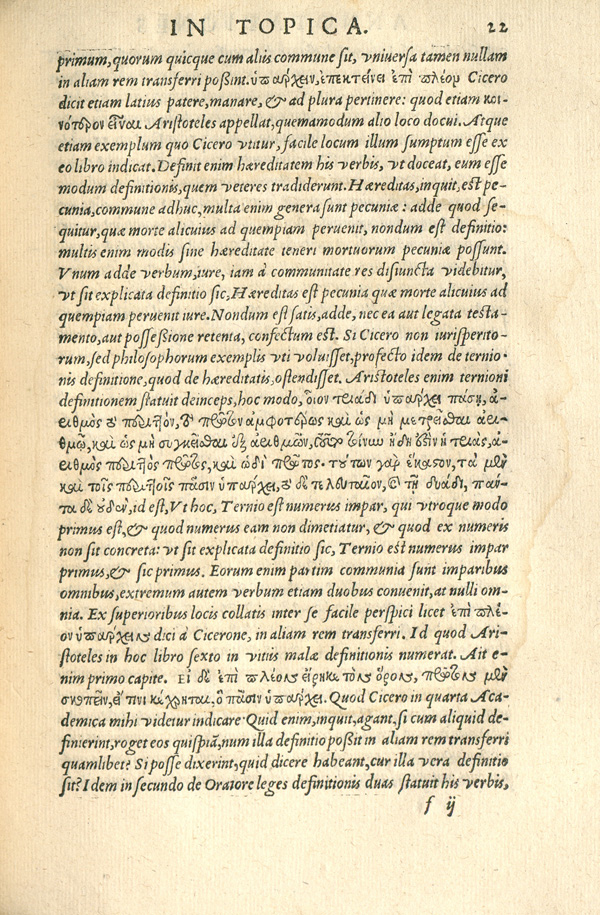 IN TOPICA. 22
primum, quorum quicque cum aliis commune sit, vniuersa tamen nullam
in aliam rem transferri poßint. ὑπάρχειν, ἐπεκτείνει ἐπὶ πλέον Cicero
dicit etiam latius patere, manare, & ad plura pertinere: quod etiam κοι-
νότερον εἶναι Aristoteles appellat, quemamodum alio loco docui. Atque
etiam exemplum quo Cicero vtitur, facile locum illum sumptum esse ex
eo libro indicat. Definit enim hæreditatem his verbis, vt doceat, eum esse
modum definitionis, quem veteres tradiderunt. Hæreditas, inquit, est pe-
cunia, commune adhuc, multa enim genera sunt pecuniæ: adde quod se-
quitur, quæ morte alicuius ad quempiam peruenit, nondum est definitio:
multis enim modis sine hæreditate teneri mortuorum pecuniæ possunt.
Vnum adde verbum, iure, iam à communitate res disiuncta videbitur,
vt sit explicata definitio sic, Hæreditas est pecunia quæ morte alicuius ad
quempiam peruenit iure. Nondum est satis, adde, nec ea aut legata testa-
mento, aut posseßione retenta, confectum est. Si Cicero non iurisperito-
rum, sed philosophorum exemplis vti voluisset, profecto idem de ternio-
nis definitione, quod de hæreditatis, ostendisset. Aristoteles enim ternioni
definitionem statuit deinceps, hoc modo, οἷον τριάδι ὑπάρχει πάσῃ, ἀ-
ριθμὸς τὸ περιττὸν, τὸ πρῶτον ἀμφοτέρως καὶ ὡς μὴ μετρεῖσθαι ἀρι-
θμῷ, καὶ ὡς μὴ συγκεῖσθαι ἐξ ἀριθμῶν, τοῦτο τοίνυν ἤδη ἐστὶν ἡ τριὰς, ἀ-
ριθμὸς περιττὸς πρῶτος, καὶ ὡδὶ πρῶτος. τούτων γὰρ ἕκαστον, τὰ μὲν
καὶ τοῖς περιττοῖς πᾶσιν ὑπάρχει, τὸ δὲ τελευταῖον, καὶ τῇ δυάδι, πάν-
τα δὲ οὐδενὶ, id est, Vt hoc, Ternio est numerus impar, qui vtroque modo
primus est, & quod numerus eam non dimetiatur, & quod ex numeris
non sit concreta: vt sit explicata definitio sic, Ternio est numerus impar
primus, & sic primus. Eorum enim partim communia sunt imparibus
omnibus, extremum autem verbum etiam duobus conuenit, at nulli om-
nia. Ex superioribus locis collatis inter se facile perspici licet ἐπὶ πλέ-
ον ὑπάρχειν dici à Cicerone, in aliam rem transferri. Id quod Ari-
stoteles in hoc libro sexto in vitiis malæ definitionis numerat. Ait e-
nim primo capite. εἰ δὲ ἐπὶ πλέον εἴρηκε τὸν ὅρον, πρῶτον μὲν
σκοπεῖν, εἴ τινι κέχρηται, ὃ πᾶσιν ὑπάρχει. Quod Cicero in quarta Aca-
demica mihi videtur indicare Quid enim, inquit, agant, si cum aliquid de-
finierint, roget eos quispiã, num illa definitio poßit in aliam rem transferri
quamlibet? Si posse dixerint, quid dicere habeant, cur illa vera definitio
sit? Idem in secundo de Oratore leges definitionis duas statuit his verbis,
f ij